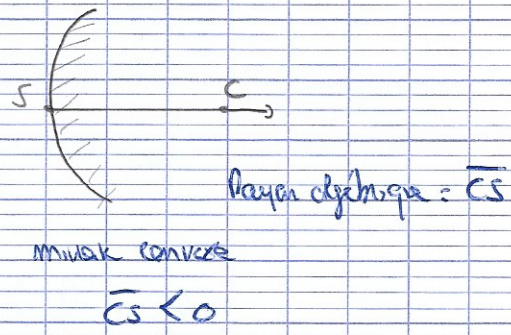 S C
Rayon algébrique = C̅S̅
miroir convexe
C̅S̅ < 0